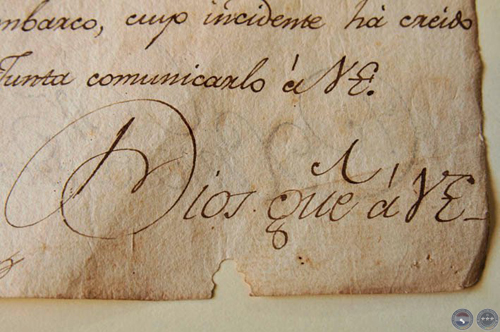 mbarco, cuyo incidente há creido
Junta comunicarlo á VE.
Dios gue á VE